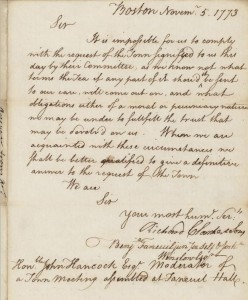 Boston Novemr. 5. 1773
Sir
It is impossible for us to comply
with the request of the Town signified to us this
day by their Committee, as we know not what
terms the Tea if any part of it should be sent
to our care, will come out on, and what
obligations either of a moral or pecuniary nature
we may be under to fulfill the trust that
may be devolved on us. When we are
acquainted with these circumstances we
shall be better qualified to give a definitive
answer to the request of the Town
We are
Sir
Your most humle. Ser
Richard Clarke & Sons
Benj Faneuil junr for self &
Winslow
Honble. John Hancock Esqr. Moderator of
a Town Meeting assembled at Faneuil Hall.